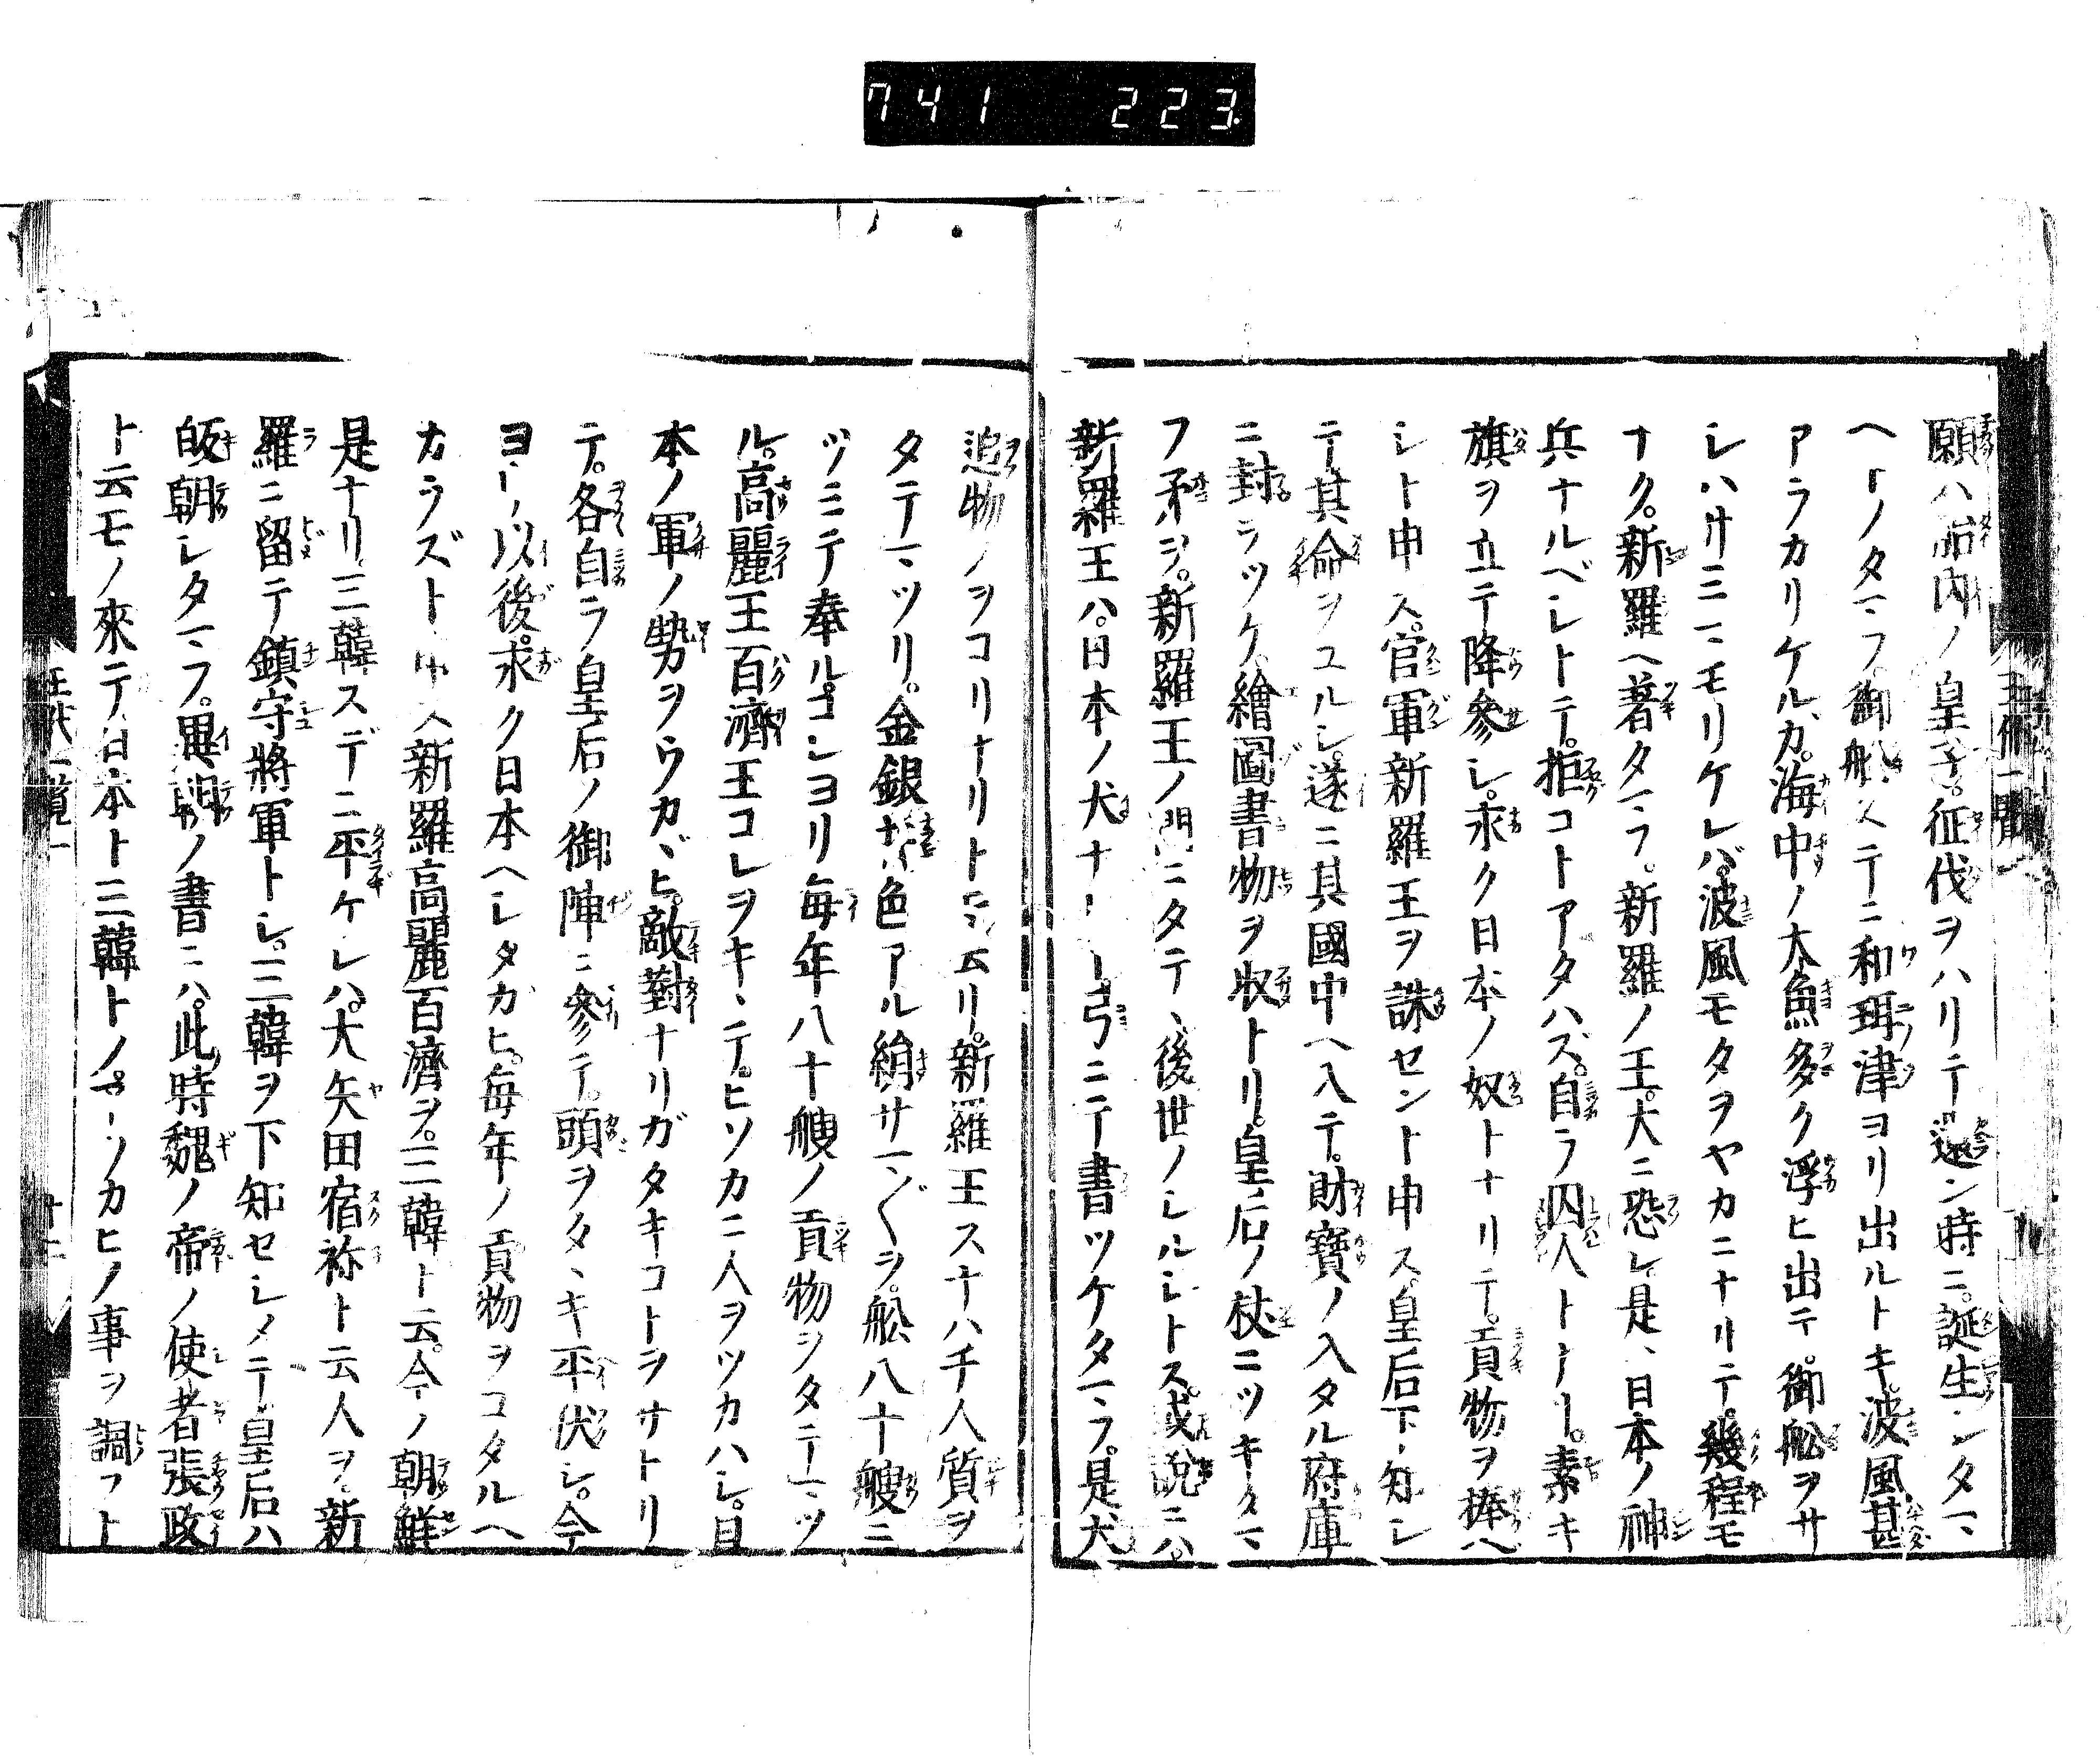 741 223
願ハ胎内ノ皇子。征伐ヲハリテ還ン時ニ。誕生シタマ
ヘトノタマフ御船ステニ和珥津ヨリ出ルトキ。波風甚
アラカリケルカ。海中ノ大魚多ク浮ヒ出テ。御舩ヲサ
シハサミマモリケレバ。波風モタヲヤカニナリテ。幾程モ
ナク。新羅ヘ著タマフ。新羅ノ王。大ニ恐レ是、日本ノ神
兵ナルベレトテ。拒コトアタハズ。自ラ囚人トナリ。素キ
旗ヲ立テ降參シ。永ク日本ノ奴トナリテ。貢物ヲ捧ヘ
シト申ス。官軍新羅王ヲ誅セント申ス。皇后下知シ
テ其命ヲユルシ。遂ニ其國中ヘ入テ。財寶ノ入タル府庫
ニ封ヲツケ。繪圖書物ヲ收トリ。皇后ノ杖ニツキタマ
フ矛ヲ。新羅王ノ門ニタテ、後世ノシルシトス。或說ニハ。
新羅王ハ。日本ノ犬ナリト弓ニテ書ツケタマフ。是犬
追物ノヲコリナリト云リ。新羅王スナハチ人質ヲ
タテマツリ。金銀 色アル絹サマ〲ヲ。舩八十艘ニ
ツミテ奉ル。コレヨリ毎年八十艘ノ貢物ヲタテマツ
ル。高麗王百濟王コレヲキヽテ。ヒソカニ人ヲツカハシ。日
本ノ軍ノ勢ヲウカヾヒ。敵對ナリガタキコトヲサトリ
テ。各自ラ皇后ノ御陣ニ參テ。頭ヲタヽキ平伏シ。今
ヨリ以後。永ク日本ヘシタガヒ。毎年ノ貢物ヲコタルヘ
カラズト申ス新羅高麗百濟ヲ。三韓ト云。今ノ朝鮮
是ナリ。三韓スデニ平ケレハ。大矢田宿祢ト云人ヲ。新
羅ニ留テ鎮守將軍トシ。三韓ヲ下知セシメテ。皇后ハ
皈朝シタマフ。異朝ノ書ニハ。此時魏ノ帝ノ使者張政
ト云モノ來テ。日本ト三韓トノアツカヒノ事ヲ調フト
王代一覧一
十二